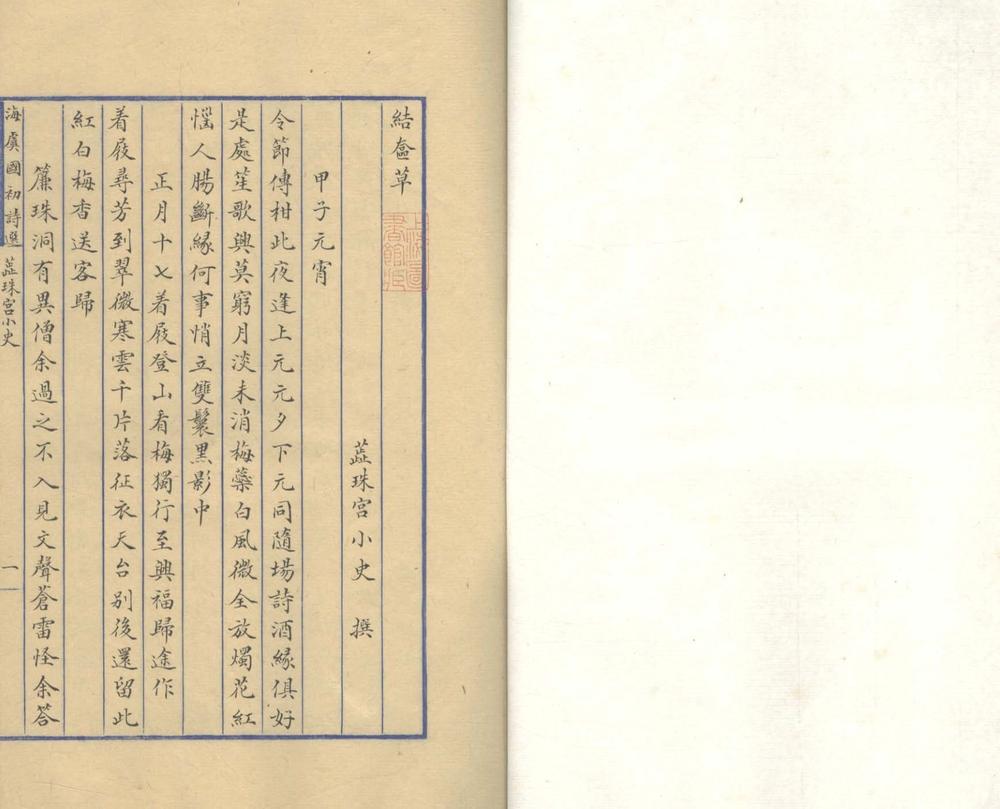 結奩草
上海圖書館藏
蕋珠宮小史　撰
甲子元宵
令節傳柑此夜逢上元元夕下元同隨場詩酒緣俱好
是處笙歌興莫窮月淡未消梅蘂白風微全放燭花紅
惱人腸斷緣何事悄立雙鬟黑影中
正月十七着屐登山看梅獨行至興福歸途作
着屐尋芳到翠微寒雲千片落征衣天台別後還留此
紅白梅香送客歸
簾珠洞有異僧余過之不入見文聲蒼雷怪余答
海虞國初詩選　蕋珠宮小史　一